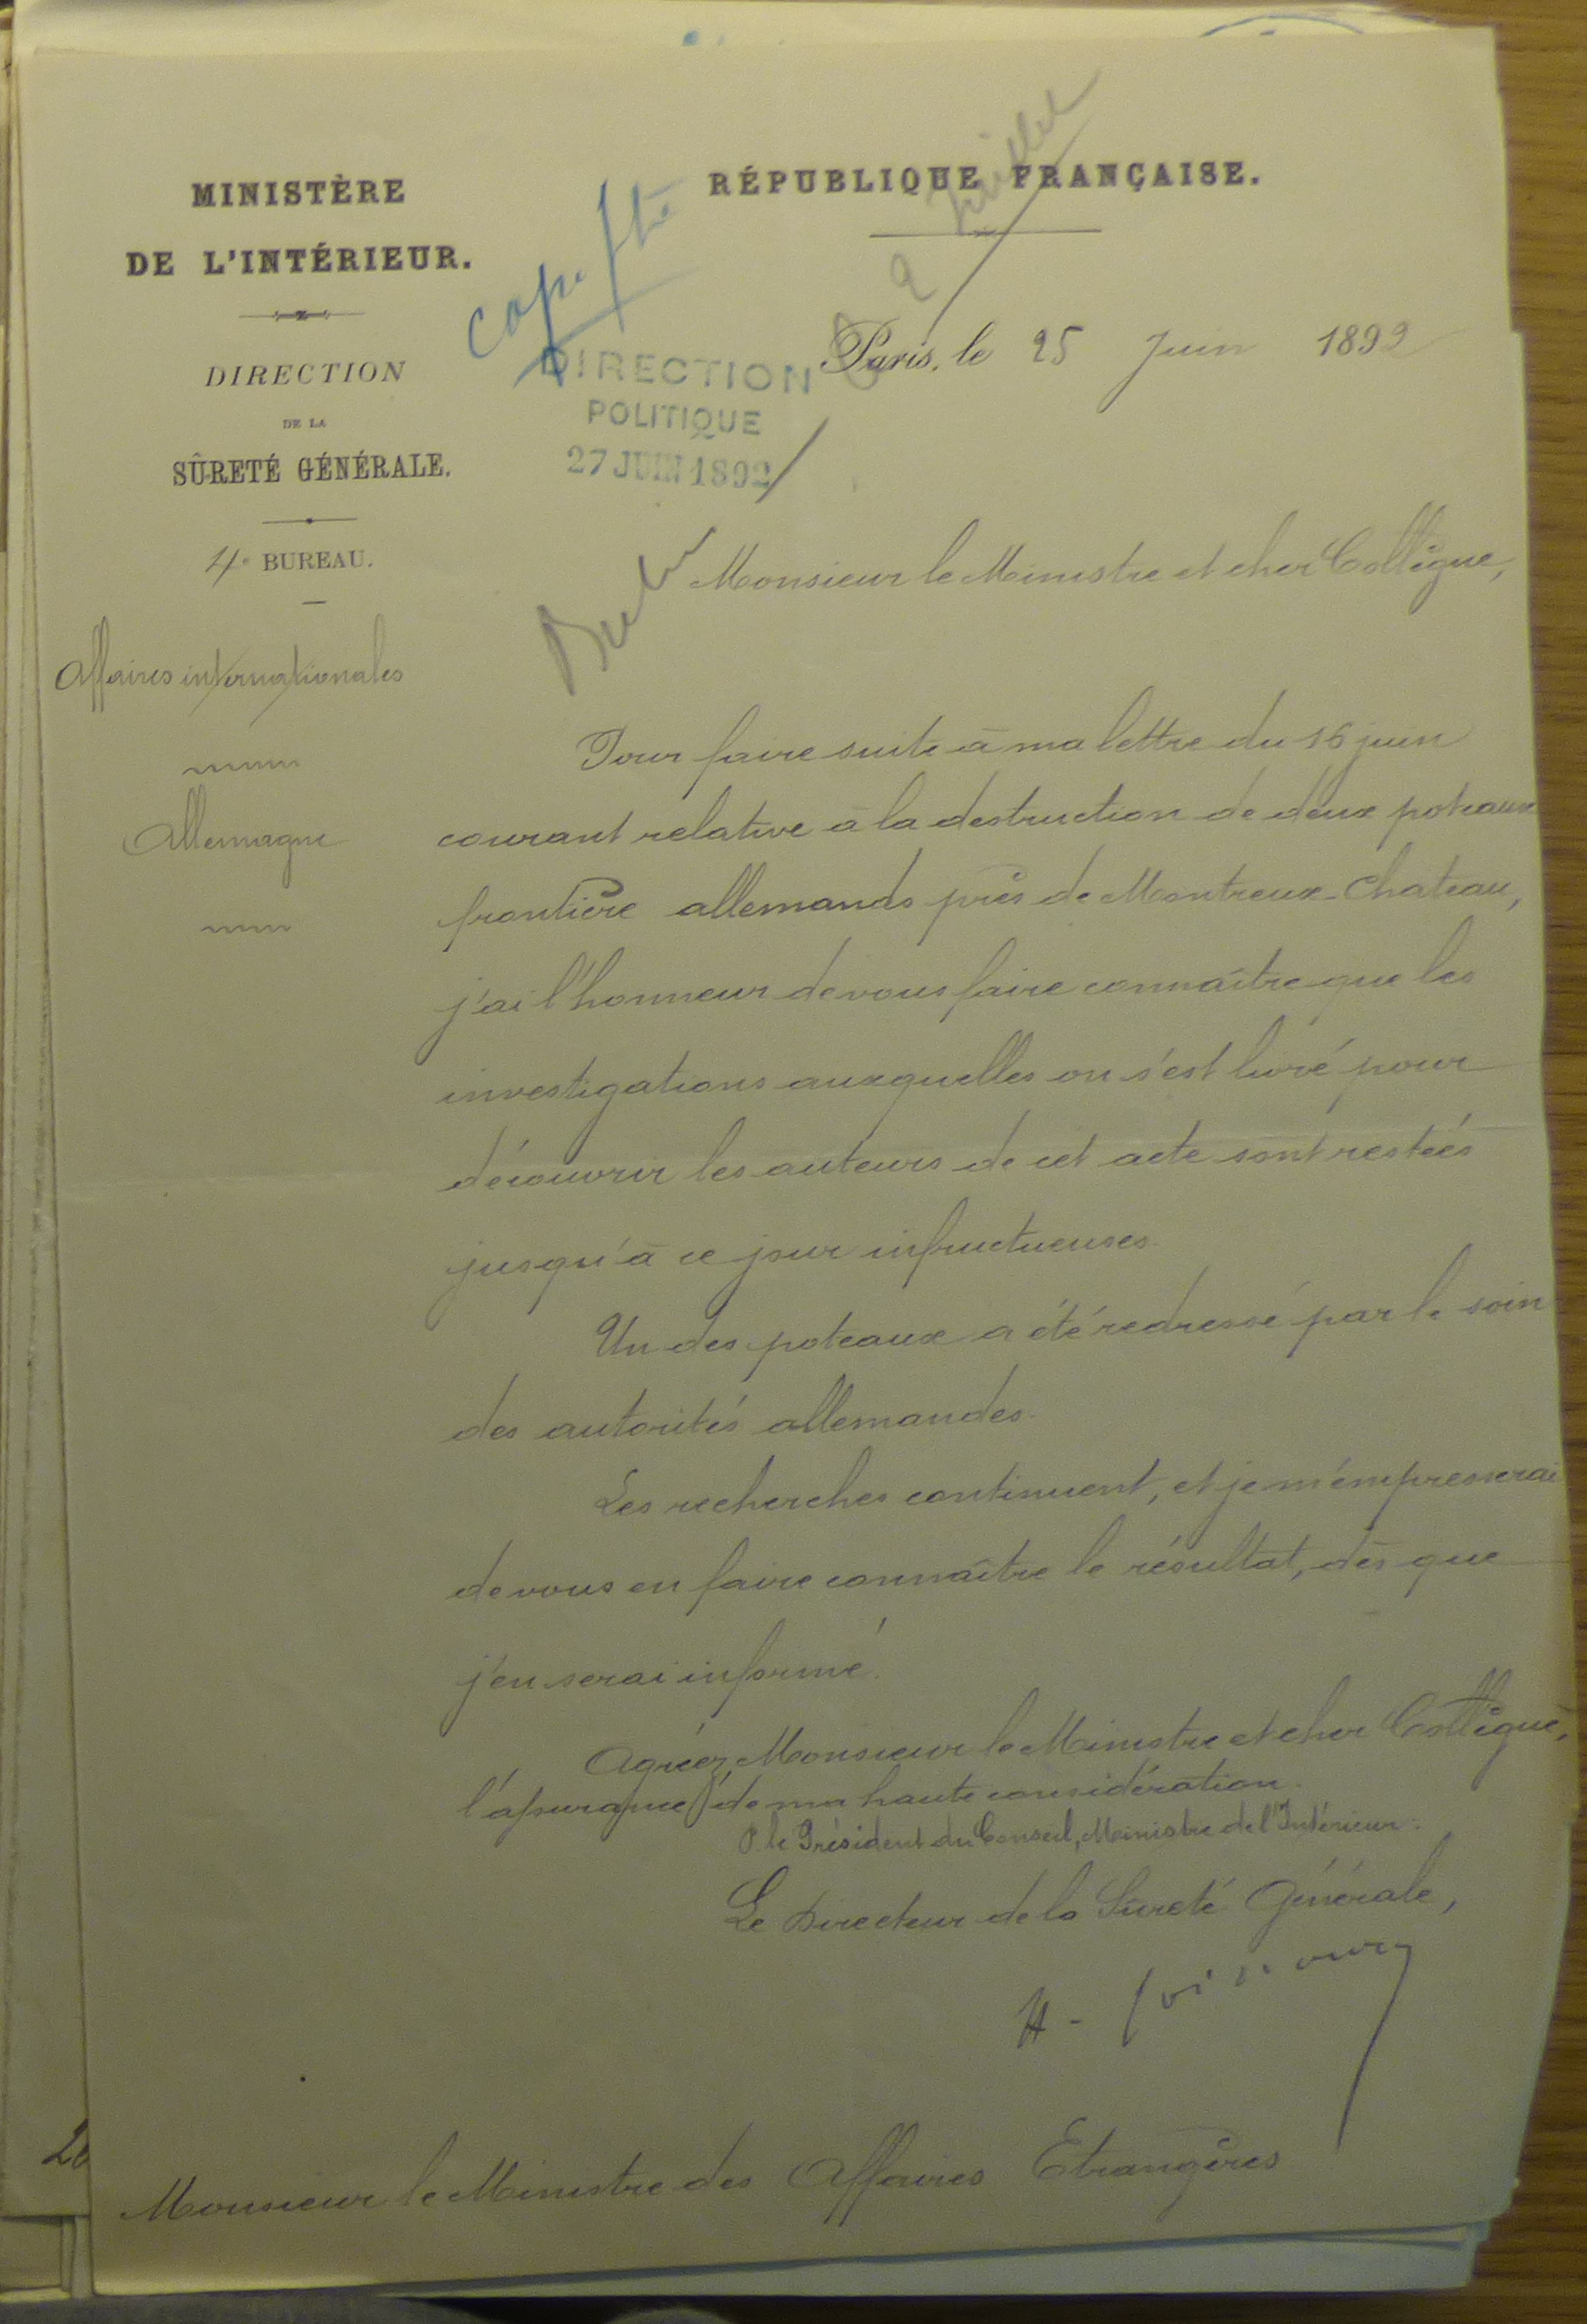 MINISTÈRE
DE L'INTÉRIEUR.
DIRECTION
DE LA
SÛRETÉ GÉNÉRALE.
4e BUREAU.
Affaires internationales
Allemagne
RÉPUBLIQUE FRANÇAISE.
Paris, le 25 Juin 1892
DIRECTION
POLITIQUE
27 JUIN 1892
Monsieur le Ministre et cher Collègue,
Pour faire suite à ma lettre du 16 juin
courant relative à la destruction de deux poteaux
frontière allemands près de Montreux-Chateau,
j'ai l'honneur de vous faire connaître que les
investigations auxquelles on s'est livré pour
découvrir les auteurs de cet acte sont restées
jusqu'à ce jour infructueuses.
Un des poteaux a été redressé par le soin
des autorités allemandes.
Les recherches continuent, et je m'empresserai
de vous en faire connaître le résultat, dès que
j'en serai informé.
Agréez, Monsieur le Ministre et cher Collègue,
l'assurance de ma haute considération.
P. le Président du Conseil, Ministre de l'Intérieur:
Le Directeur de la Sûreté Générale,
Monsieur le Ministre des Affaires Etrangères